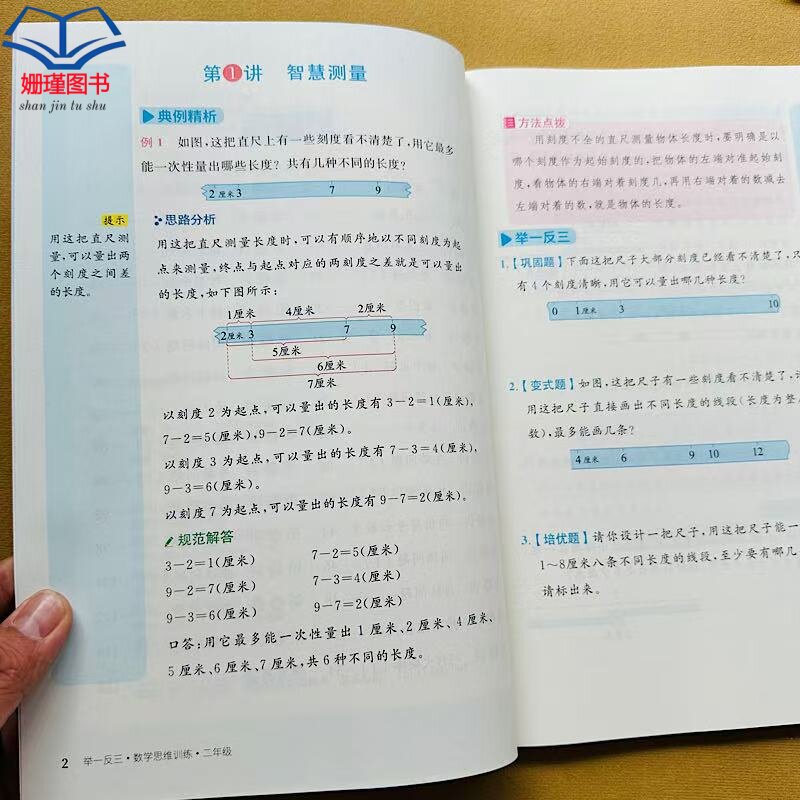 姗瑾图书
shan jin tu shu
第1讲 智慧测量
典例精析
例1 如图,这把直尺上有一些刻度看不清楚了,用它最多
能一次性量出哪些长度?共有几种不同的长度?
2厘米3 7 9
提示
用这把直尺测
量,可以量出两
个刻度之间差
的长度。
思路分析
用这把直尺测量长度时,可以有顺序地以不同刻度为起
点来测量,终点与起点对应的两刻度之差就是可以量出
的长度,如下图所示:
1厘米 4厘米 2厘米
2厘米3 7 9
5厘米
6厘米
7厘米
以刻度2为起点,可以量出的长度有3-2=1(厘米),
7-2=5(厘米),9-2=7(厘米)。
以刻度3为起点,可以量出的长度有7-3=4(厘米),
9-3=6(厘米)。
以刻度7为起点,可以量出的长度有9-7=2(厘米)。
规范解答
3-2=1(厘米) 7-2=5(厘米)
9-2=7(厘米) 7-3=4(厘米)
9-3=6(厘米) 9-7=2(厘米)
口答:用它最多能一次性量出1厘米、2厘米、4厘米、
5厘米、6厘米、7厘米,共6种不同的长度。
2 举一反三·数学思维训练·二年级
方法点拨
用刻度不全的直尺测量物体长度时,要明确是以
哪个刻度作为起始刻度的,把物体的左端对准起始刻
度,看物体的右端对着刻度几,再用右端对着的数减去
左端对着的数,就是物体的长度。
举一反三
1.【巩固题】下面这把尺子大部分刻度已经看不清楚了,只
有4个刻度清晰,用它可以量出哪几种长度?
0 1厘米 3 10
2.【变式题】如图,这把尺子有一些刻度看不清楚了,
用这把尺子直接画出不同长度的线段(长度为整
数),最多能画几条?
4厘米 6 9 10 12
3.【培优题】请你设计一把尺子,用这把尺子能一
1~8厘米八条不同长度的线段,至少要有哪几
请标出来。